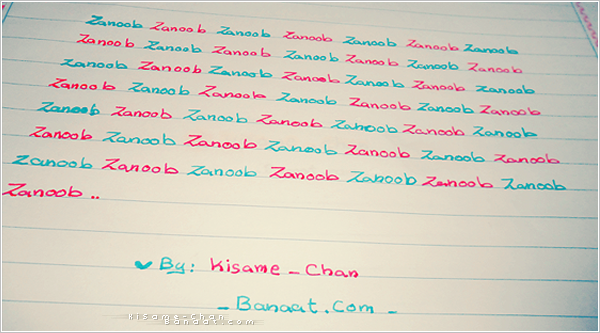 Zanoob Zanoob Zanoob Zanoob Zanoob Zanoob Zanoob
Zanoob Zanoob Zanoob Zanoob Zanoob Zanoob Zanoob
Zanoob Zanoob Zanoob Zanoob Zanoob Zanoob Zanoob
Zanoob Zanoob Zanoob Zanoob Zanoob Zanoob Zanoob
Zanoob Zanoob Zanoob Zanoob Zanoob Zanoob Zanoob
Zanoob Zanoob Zanoob Zanoob Zanoob Zanoob Zanoob
Zanoob Zanoob Zanoob Zanoob Zanoob Zanoob Zanoob
Zanoob ..
By: Kisame - Chan
- Banaat.Com -
Kisame-Chan
Banaat.com